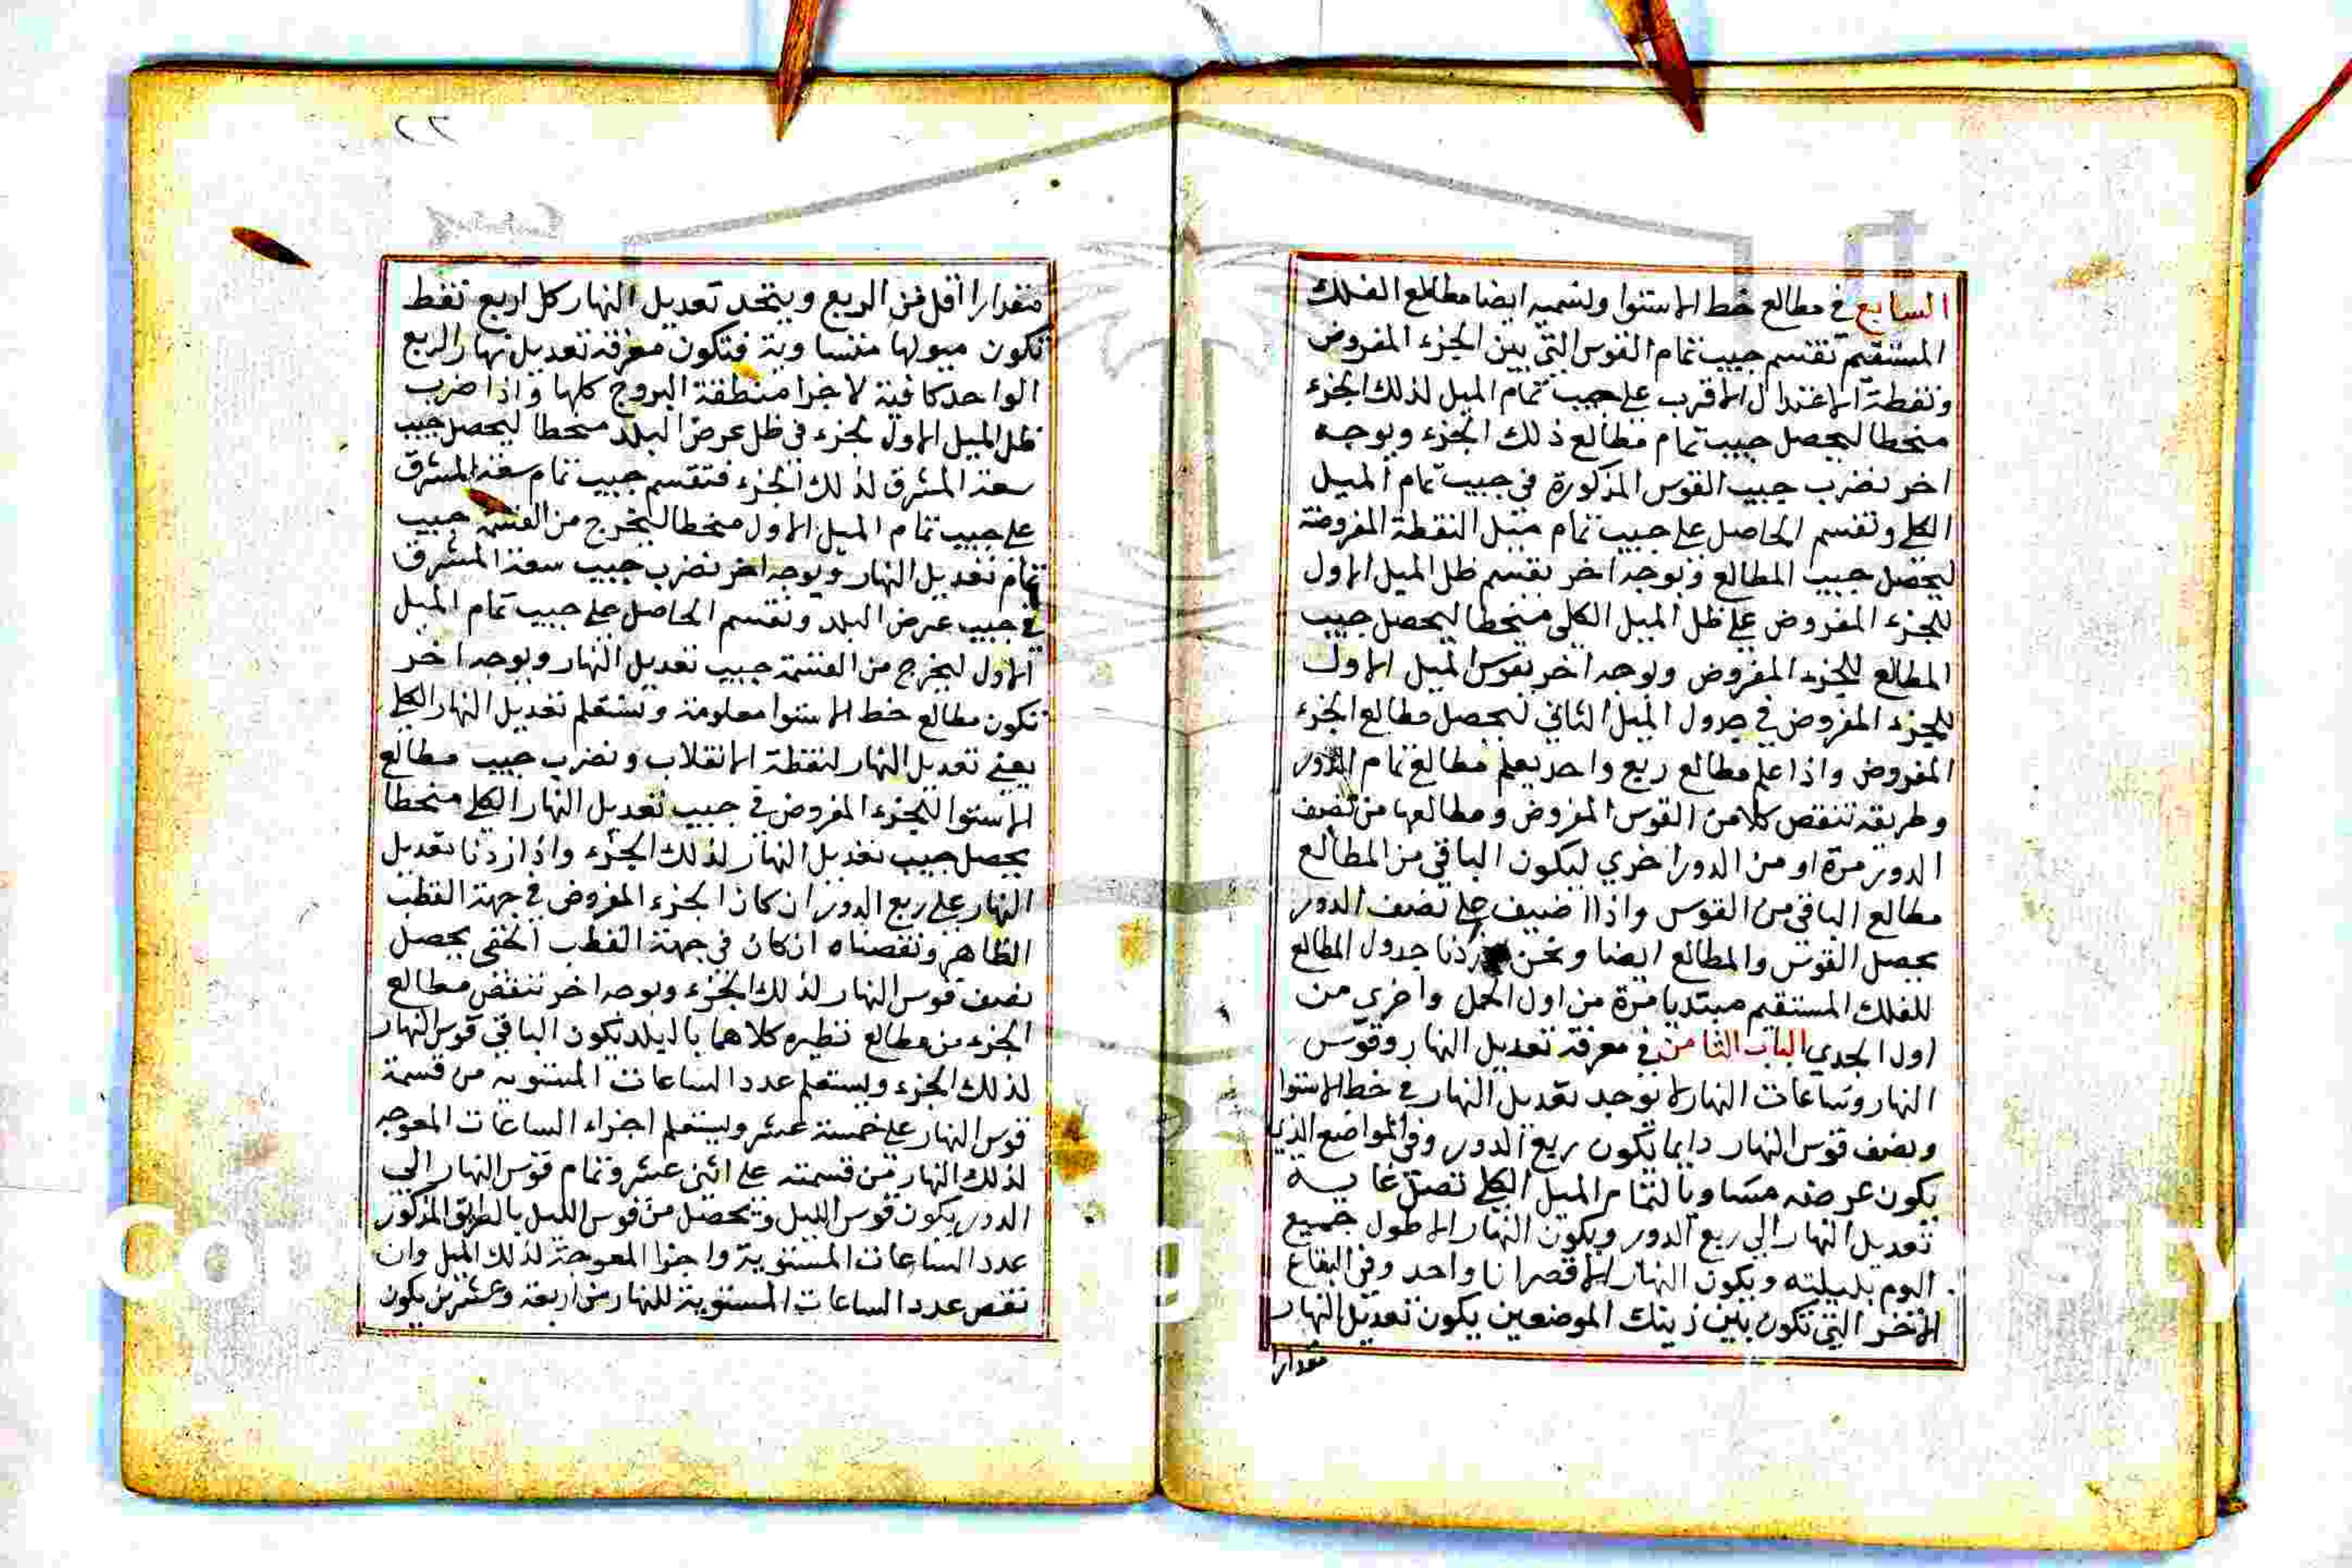 السابع في مطالع خط الاستوا ونسميه ايضا مطالع الفلك
المستقيم نقسم جيب تمام القوس التي بين الجزء المفروض
ونقطة الاعتدال الاقرب على جيب تمام الميل لذلك الجزء
منحطا ليحصل جيب تمام مطالع ذلك الجزء وبوجه
اخر نضرب جيب القوس المذكورة في جيب تمام الميل
الكلي ونقسم الحاصل على جيب تمام ميل النقطة المفروضة
ليحصل جيب المطالع وبوجه اخر نقسم ظل الميل الاول
للجزء المفروض على ظل الميل الكلي منحطا ليحصل جيب
المطالع للجزء المفروض وبوجه اخر نقوس الميل الاول
للجزء المفروض في جدول الميل الثاني ليحصل مطالع الجزء
المفروض واذا علم مطالع ربع واحد يعلم مطالع تمام الدور
وطريقه ننقص كلا من القوس المفروض ومطالعها من نصف
الدور مرة او من الدور اخري ليكون الباقي من المطالع
مطالع الباقي من القوس واذا اضيف على نصف الدور
يحصل القوس والمطالع ايضا ونحن جدول المطالع
للفلك المستقيم مبتديا مرة من اول الحمل واخري من
اول الجدي الباب الثامن في معرفة تعديل النهار وقوس
النهار وساعات النهار لا يوجد تعديل النهار في خط الاستوا
ونصف قوس النهار دايما تكون ربع الدور وفي المواضع الذي
يكون عرضه مساويا لتمام الميل الكلي تصل غاية
تعديل النهار الي ربع الدور ويكون النهار الاطول جميع
اليوم بليلته ويكون النهار الاقصر انا واحد وفي البقاع
الاخر التي تكون بين ذينك الموضعين يكون تعديل النهار
مقدارا
٢٢
مقدارا اقل من الربع ويتحد تعديل النهار كل اربع نقط
تكون ميولها متساوية فتكون معرفة تعديل نهار الربع
الواحد كافية لاجزا منطقة البروج كلها واذا ضرب
ظل الميل الاول لجزء في ظل عرض البلد منحطا ليحصل جيب
سعة المشرق لذلك الجزء فنقسم جيب تمام سعة المشرق
على جيب تمام الميل الاول منحطا ليخرج من القسمة جيب
تمام تعديل النهار وبوجه اخر نضرب جيب سعة المشرق
في جيب عرض البلد ونقسم الحاصل على جيب تمام الميل
الاول ليخرج من القسمة جيب تعديل النهار وبوجه اخر
تكون مطالع خط الاستوا معلومة ونستعلم تعديل النهار الكلي
يعني تعديل النهار لنقطة الانقلاب ونضرب جيب مطالع
الاستوا للجزء المفروض في جيب تعديل النهار الكلي منحطا
يحصل جيب تعديل النهار لذلك الجزء واذا زدنا تعديل
النهار على ربع الدور ان كان الجزء المفروض في جهة القطب
الظاهر ونقصناه ان كان في جهة القطب الخفي يحصل
نصف قوس النهار لذلك الجزء وبوجه اخر ننقص مطالع
الجزء من مطالع نظيره كلاهما بالبلد تكون الباقي قوس النهار
لذلك الجزء ويستعلم عدد الساعات المستويه من قسمة
قوس النهار على خمسة عشر ويستعلم اجزاء الساعات المعوجه
لذلك النهار من قسمته على اثني عشر وتمام قوس النهار الي
الدور يكون قوس الليل ويحصل من قوس الليل بالطريق المذكور
عدد الساعات المستوية واجزا المعوجة لذلك الليل وان
نقص عدد الساعات المستوية للنهار من اربعة وعشرين يكون